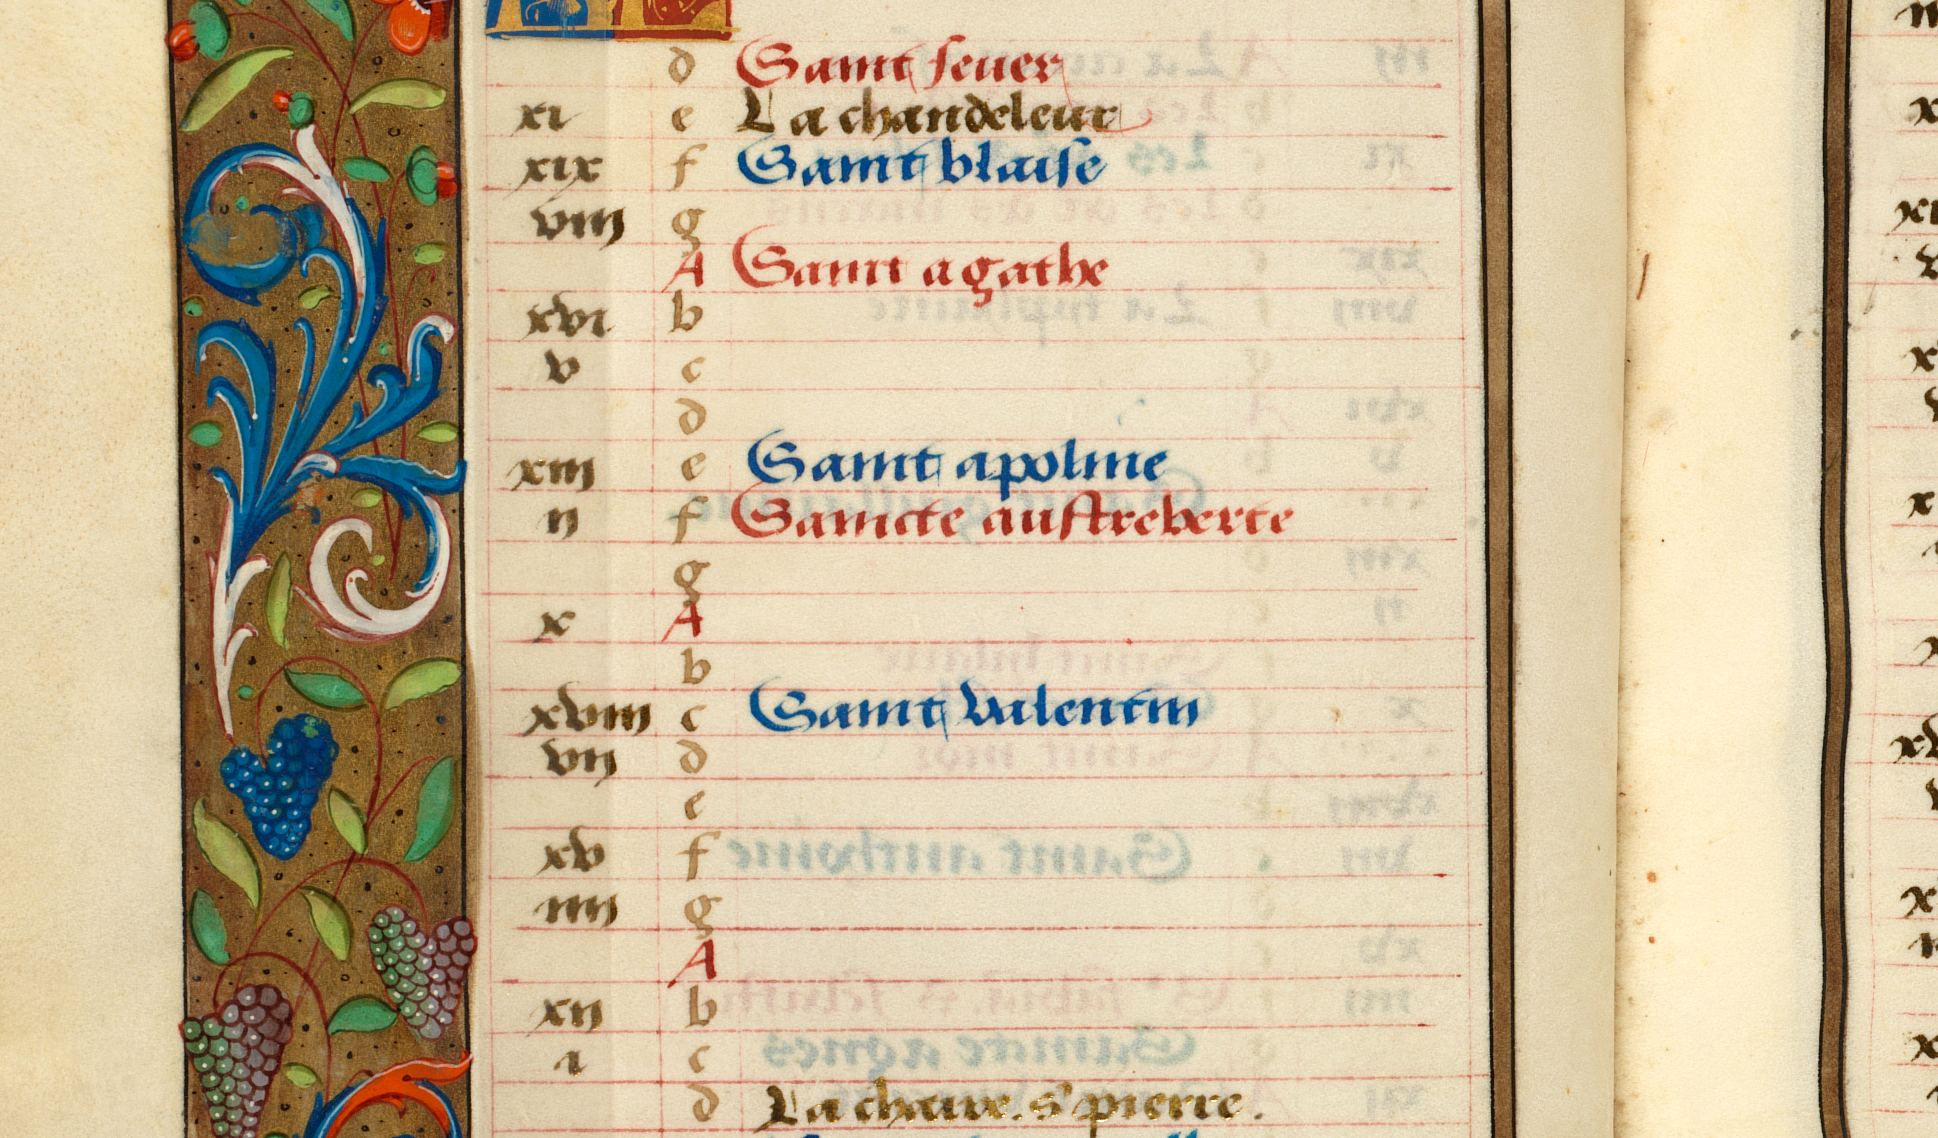 d Saint seuer
xi e La chandeleur
xix f Saint blaise
viii g
A Saint agathe
xvi b
v c
d
xiii e Saint apoline
ii f Saincte austreberte
g
x A
b
xviii c Saint valentin
vii d
e
xv f
iiii g
A
xii b
i c
d La chaire s' pierre.